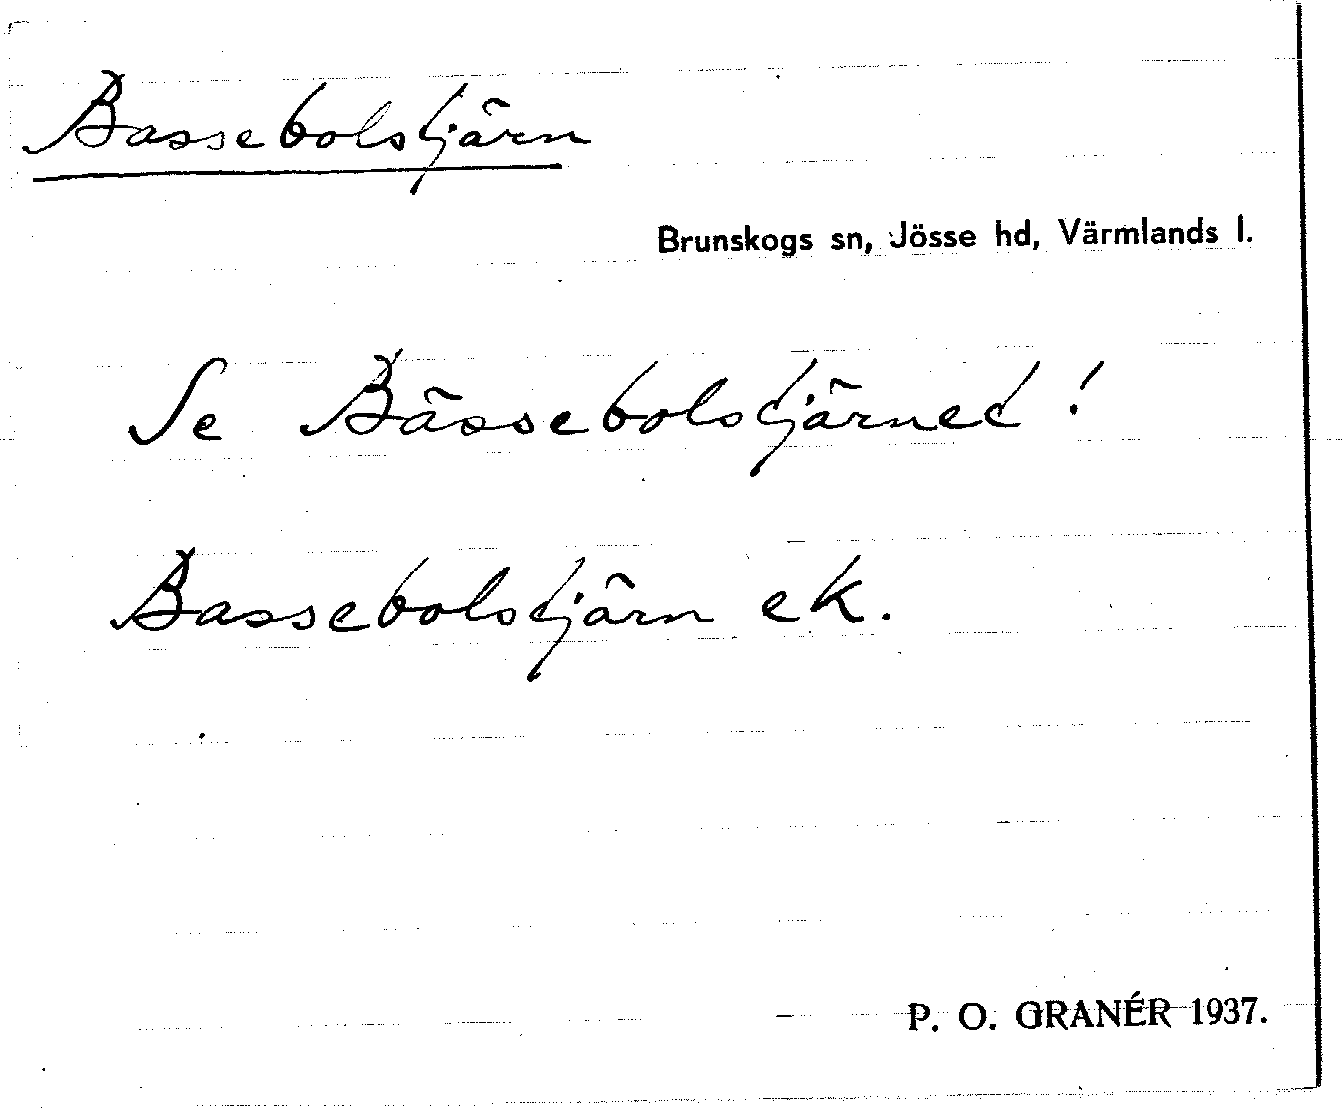 Bassebolstjärn
Brunskogs sn, Jösse hd, Värmlands l.
Se Bässebolstjärnet!
Bassebolstjärn ek.
P. O. GRANÉR 1937.